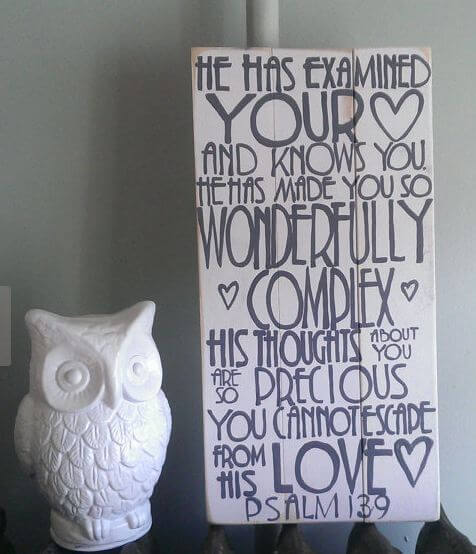 HE HAS EXAMINED
YOUR ♡
AND KNOWS YOU.
HE HAS MADE YOU SO
WONDERFULLY
♡ COMPLEX ♡
HIS THOUGHTS ABOUT YOU
ARE SO PRECIOUS
YOU CANNOT ESCAPE
FROM HIS LOVE ♡
PSALM 139